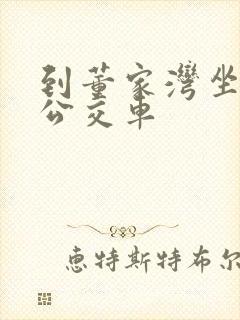 到董家灣坐
公交車
恵特斯特布尔